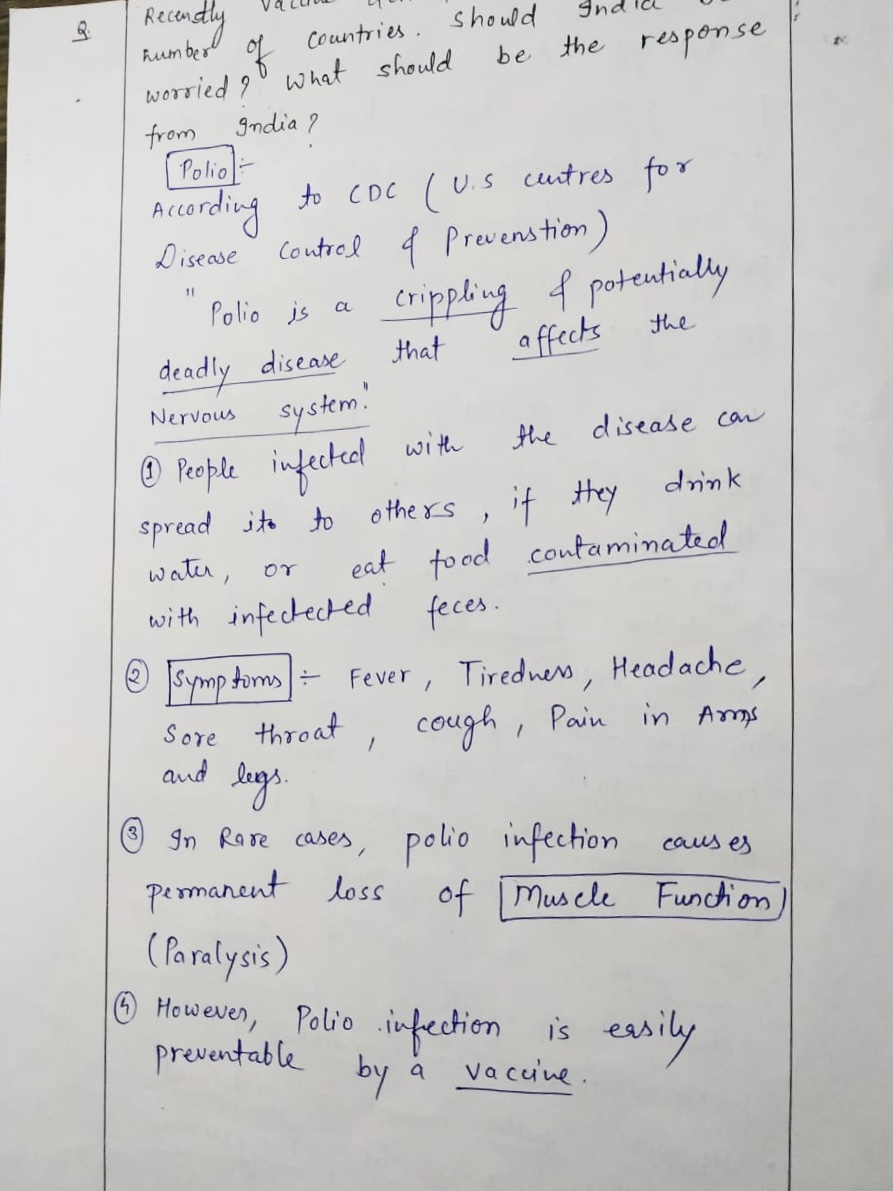 Q. Recently
number of countries. Should India
worried? What should be the response
from India?
Polio :-
According to CDC (U.S centres for
Disease Control & Prevenstion)
"Polio is a crippling & potentially
deadly disease that affects the
Nervous system."
① People infected with the disease can
spread it to others, if they drink
water, or eat food contaminated
with infectected feces.
② Symptoms :- Fever, Tiredness, Headache,
Sore throat, cough, Pain in Arms
and legs.
③ In Rare cases, polio infection causes
permanent loss of Muscle Function
(Paralysis)
④ However, Polio infection is easily
preventable by a vaccine.